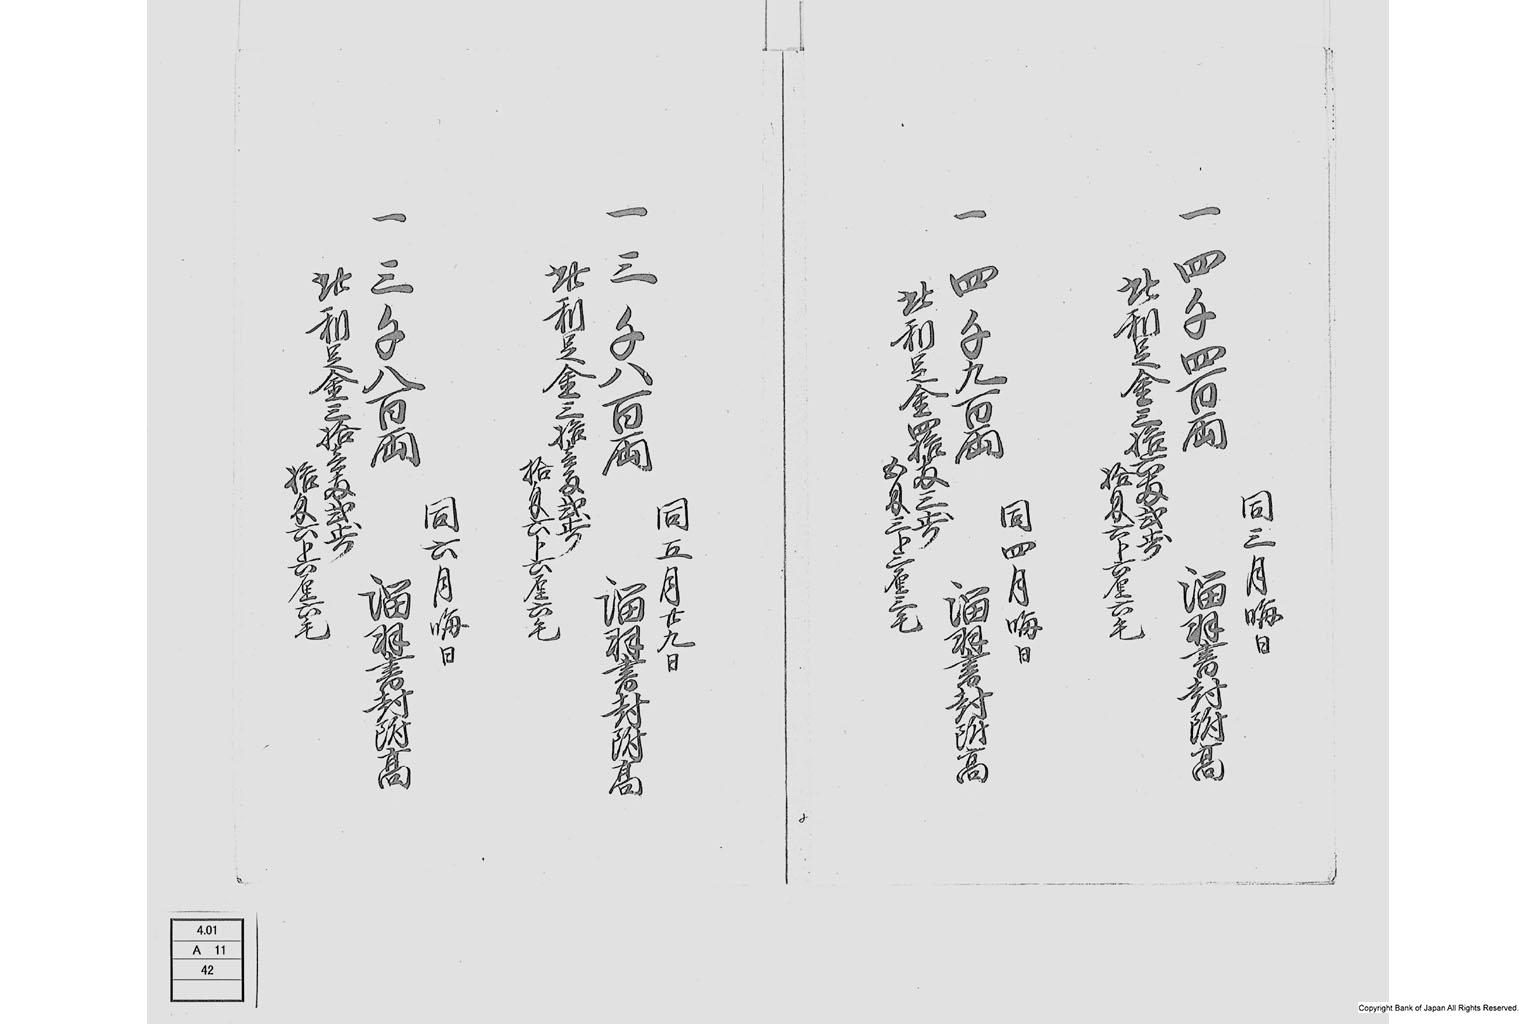 同三月晦日
一 四千四百両 溜羽書封附高
此利足金三拾六両弐歩
拾匁六分六厘六毛
同四月晦日
一 四千九百両 溜羽書封附高
此利足金四拾両三歩
五匁三分三厘三毛
同五月廿九日
一 三千八百両 溜羽書封附高
此利足金三拾壱両弐歩
拾匁六分六厘六毛
同六月晦日
一 三千八百両 溜羽書封附高
此利足金三拾壱両弐歩
拾匁六分六厘六毛
4.01
A 11
42
Copyright Bank of Japan All Rights Reserved.